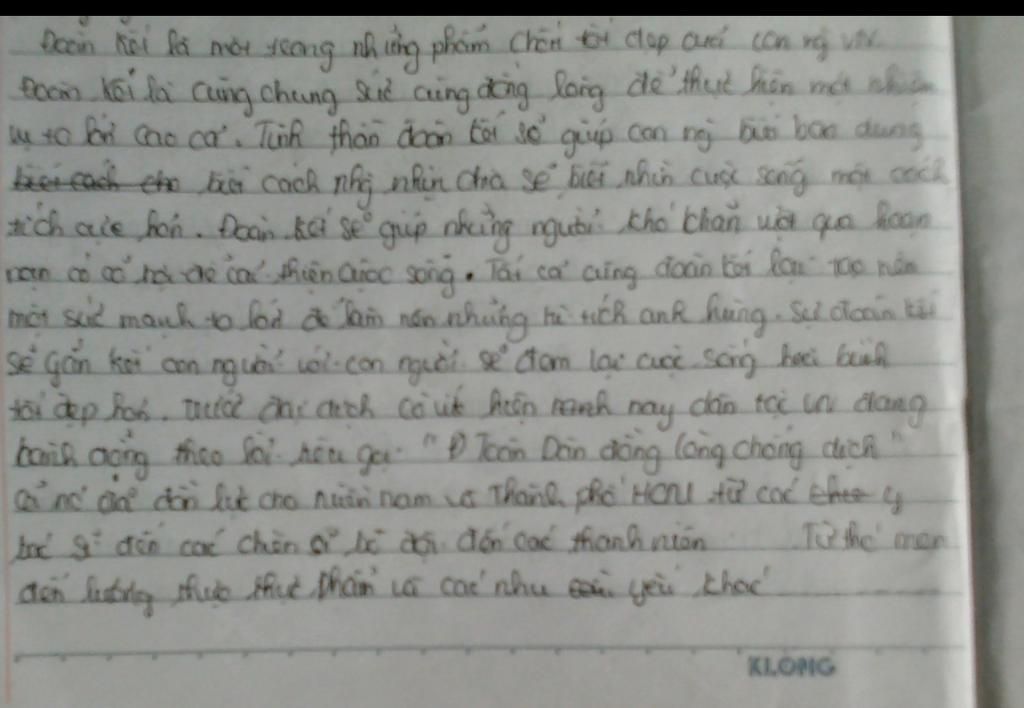 Đoàn kết là một trong những phẩm chất tốt đẹp của con ng VN.
Đoàn kết là cùng chung sức cùng đồng lòng để thực hiện một nhiệm
vụ to lớn cao cả. Tinh thần đoàn kết sẽ giúp con ng biết bao dung
biết cách cho biết cách nhịn chia sẻ biết nhìn cuộc sống một cách
tích cực hơn. Đoàn kết sẽ giúp những người khó khăn vượt qua hoạn
nạn có cơ hội để cải thiện cuộc sống. Tất cả cùng đoàn kết lại tạo nên
một sức mạnh to lớn để làm nên những kì tích anh hùng. Sự đoàn kết
sẽ gắn kết con người với con người sẽ đem lại cuộc sống hoà bình
tốt đẹp hơn. Trước đại dịch covit hiện hành nay dân tộc VN đang
hành động theo lời kêu gọi "Đ Toàn Dân đồng lòng chống dịch"
Cả nc dồn lực cho miền nam và Thành phố HCM từ các y
bác sĩ đến các chiến sĩ bộ đội đến các thanh niên Từ
đến lương thực thực phẩm và các nhu yếu khác
KLONG